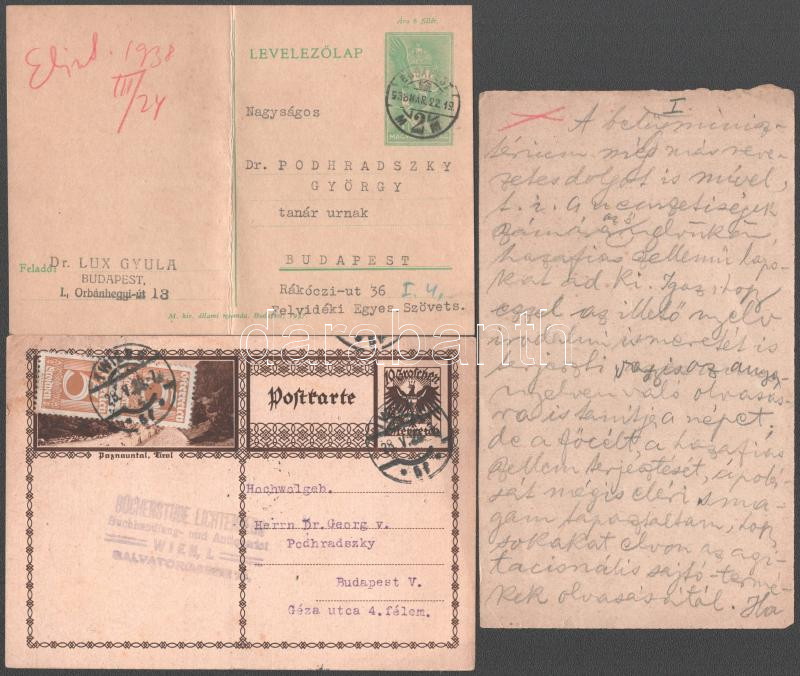 Ára 6 fillér.
LEVELEZŐLAP
1938
III/24
938 MÁR. 22. 19
Nagyságos
Dr. PODHRADSZKY
GYÖRGY
tanár urnak
BUDAPEST
Rákóczi-ut 36 I. 4.
Felvidéki Egyes.Szövets.
Feladó:
Dr. LUX GYULA
BUDAPEST,
I, Orbánhegyi-út 13
M. kir. állami nyomda. Budapest,
darabanth
Postkarte
Groschen
Paznauntal, Tirol
BÜCHERSTUBE
Buchhandlung- und Antiquariat
WIEN, I.
Hochwolgeb.
Herrn Dr. Georg v.
Podhradszky
Budapest V.
Géza utca 4. félem.
I
A belügyminisz-
térium még más neve-
zetes dolgot is mível,
t. i. A nemzetiségek
számára az ő nyelvükön
hazafias szellemű lapo-
kat ad ki. Igaz, hogy
ezzel az illető nyelv
irodalmi ismeretét is
terjeszti
nyelven való olvasás-
ra is tanítja a népet,
de a főcélt, a hazafias
szellem terjesztését, ápolá-
sát mégis eléri s ma-
gam tapasztaltam, hogy
sokakat elvon az agi-
tacionális sajtó-termé-
kek olvasásától. Ha